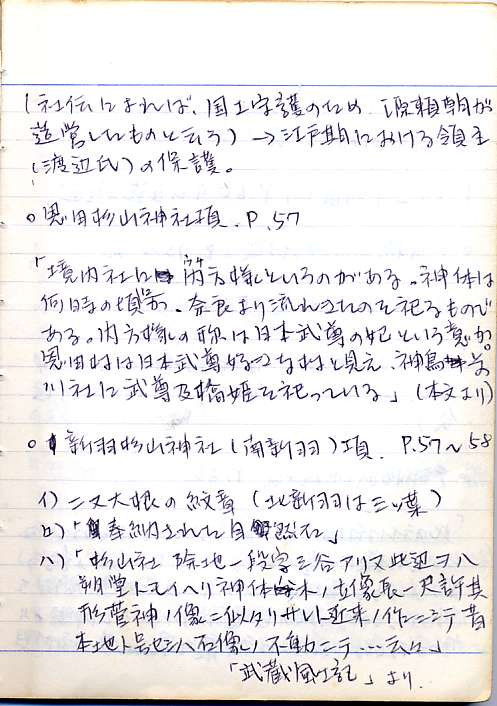 (社伝によれば、国土守護のため 源頼朝が
造営したものと云う) →江戸期における領主
(渡辺氏)の保護。
○恩田杉山神社項. P.57
「境内社に 内方様というのがある。神体は
何時の頃か、奈良より流れきたのを祀るもので
ある。内方様の称は日本武尊の妃という意か。
恩田村は日本武尊好きな村と見え、神鳥
川社に武尊及橘姫を祀っている」(本文より)
○新羽杉山神社(南新羽)項. P.57~58
イ)二又大根の紋章 (北新羽は三ッ葉)
ロ)「奉納された自然石」
ハ)「杉山社 除地一段字三谷アリ又此辺ヲハ
朔堂トモイヘリ神体木ノ立像長一尺許其
形菅神ノ像ニ似タリサレト近来ノ作ニシテ昔
本地ト号セシハ石像ノ不動ニテ…云々」
「武蔵風土記」より.